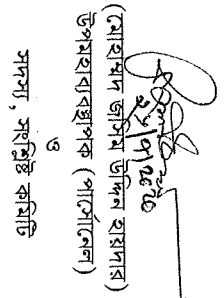 ২১/৭/২০২০
(মোহাম্মদ জসিম উদ্দিন হায়দার)
উপমহাব্যবস্থাপক (পার্সোনেল)
ও
সদস্য, সংশ্লিষ্ট কমিটি